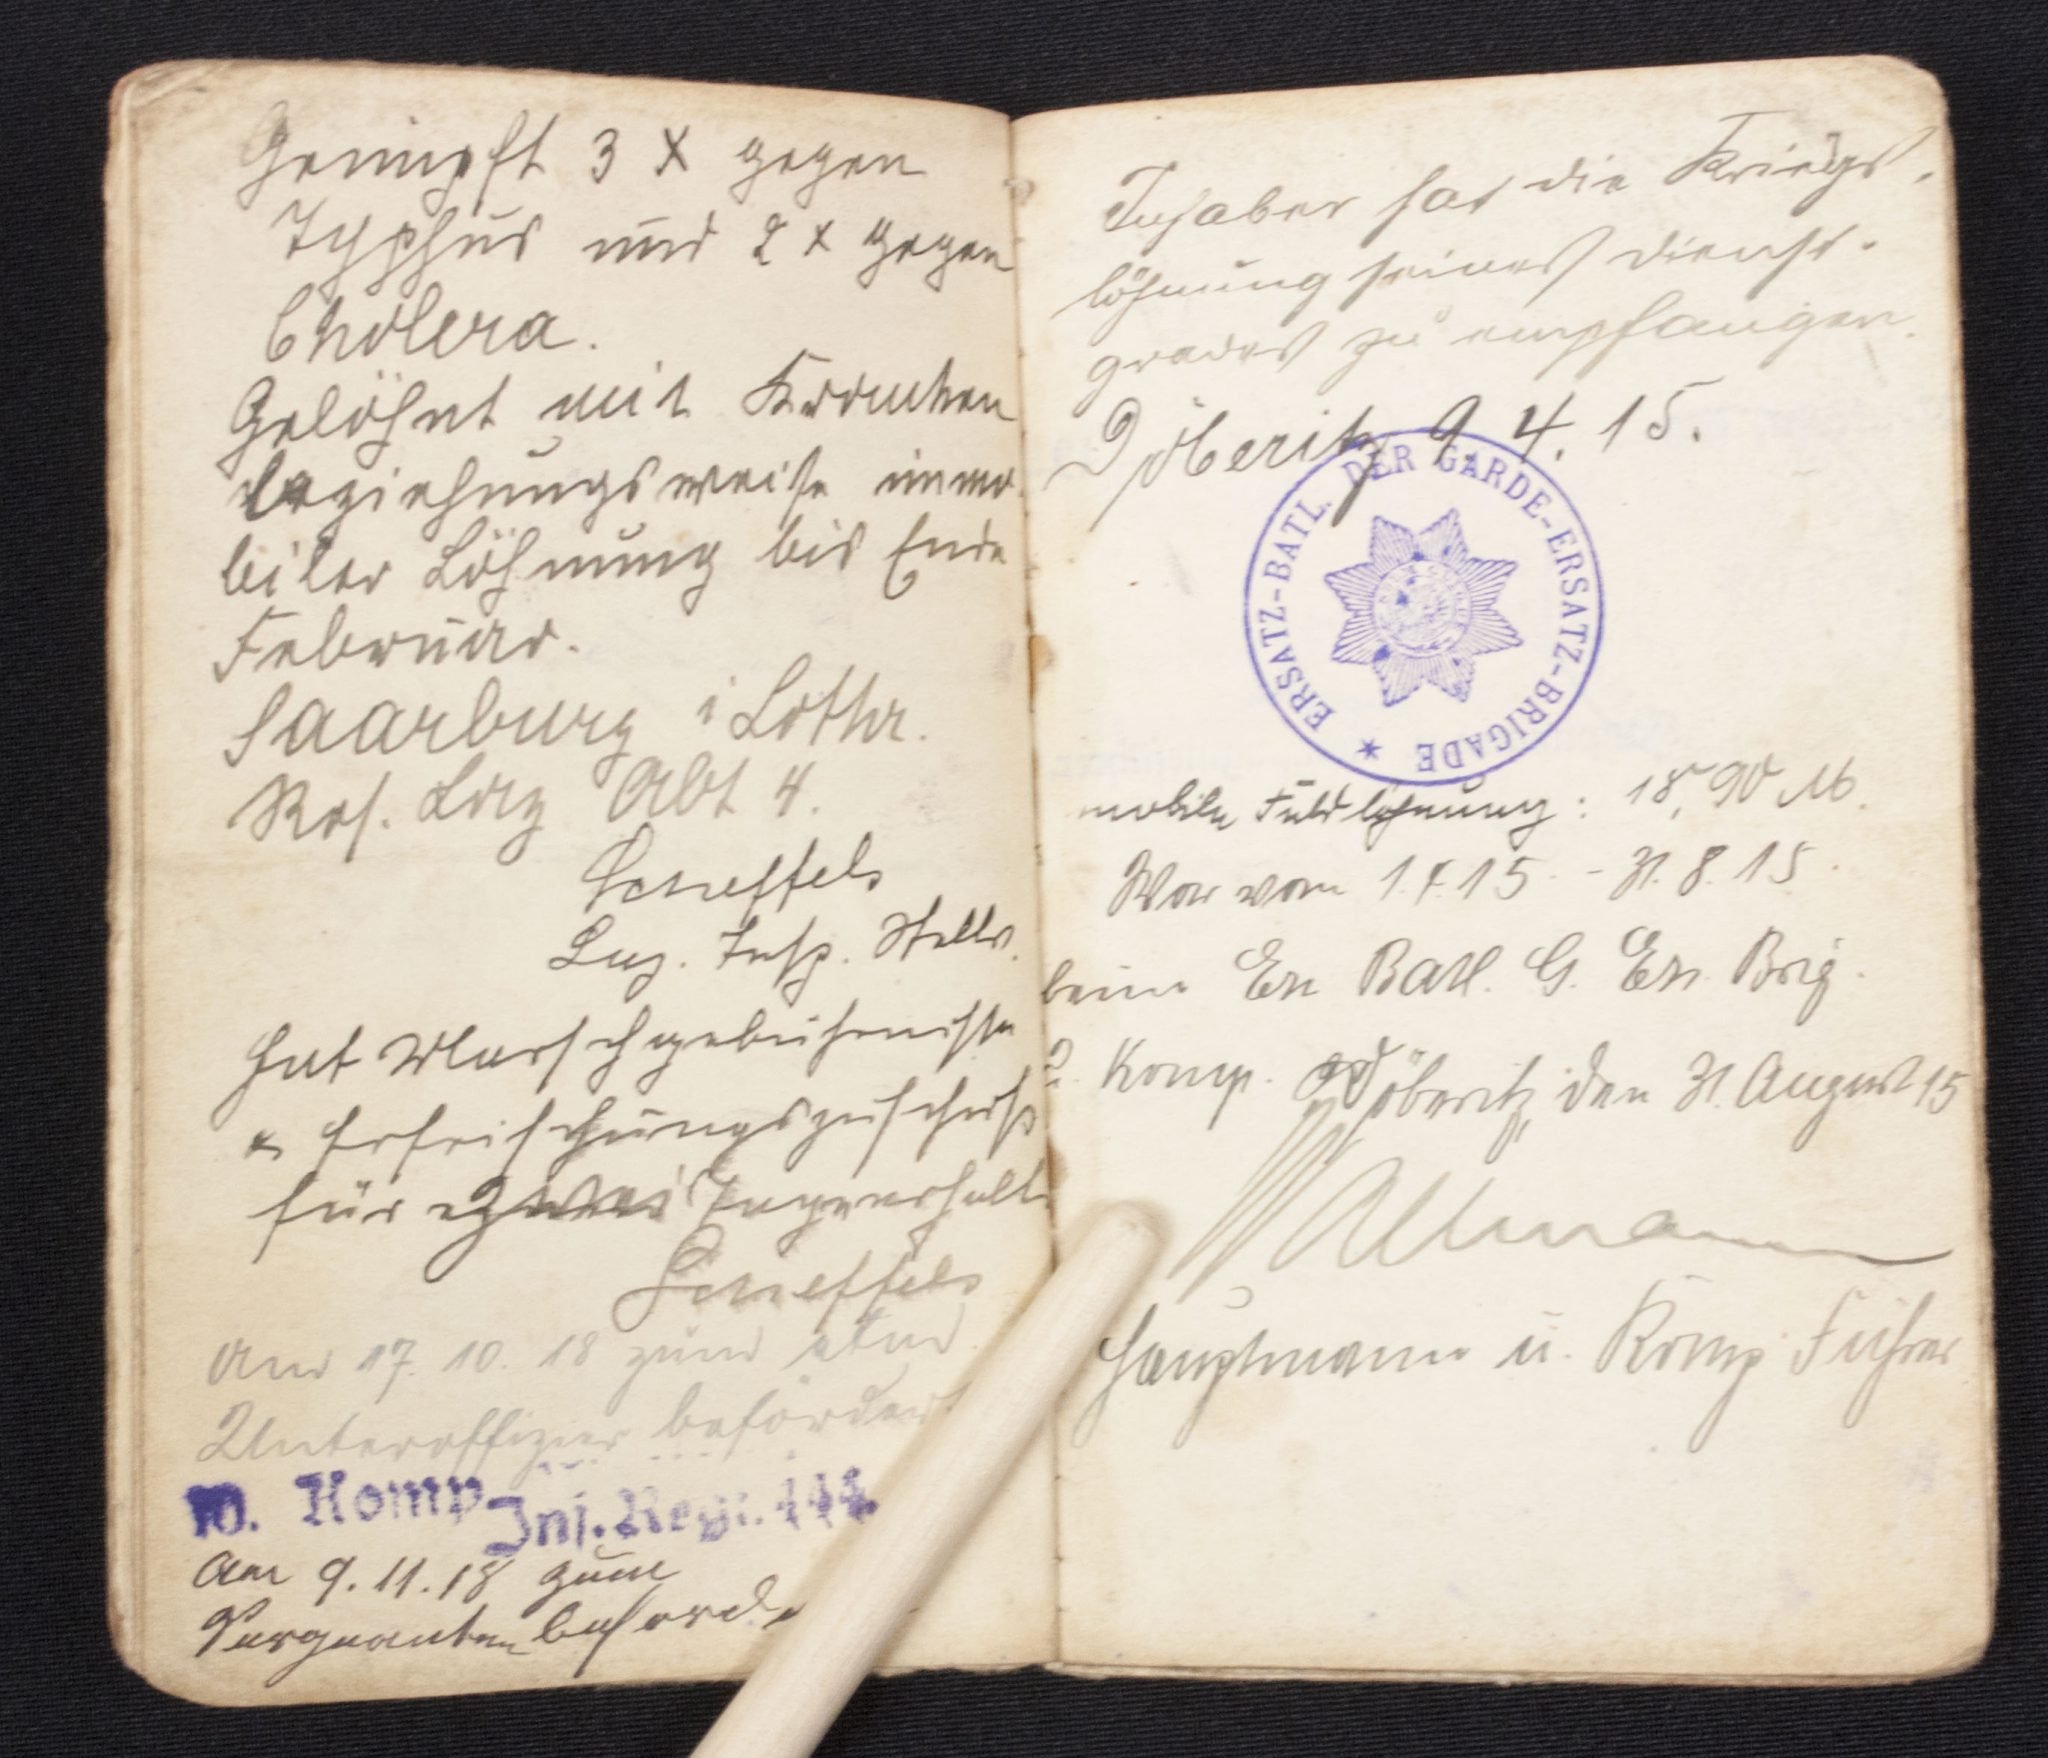 Geimpft 3 X gegen
Typhus und 2 x gegen
Cholera.
Gelöhnt mit Kranken
beziehungsweise immo
biler Löhnung bis Ende
Februar.
Saarburg i Lothr.
Res. Laz Abt 4.
Scheffels
Laz. Insp. Stellv.
Hat Marschgebührnisse
u Erfrischungszuschuß
für zwei Tage erhalt
Scheffels
Am 17. 10. 18 zum etm.
Unteroffizier befördert
10. Komp Inf. Regt. 444.
Am 9. 11. 18 zum
Sergeanten beförde
Inhaber hat die Kriegs-
löhnung seines Dienst-
grades zu empfangen.
Döberitz 9. 4. 15.
ERSATZ-BATL. DER GARDE-ERSATZ-BRIGADE
mobile Feldlöhnung: 18,90 M.
War vom 1.4.15. - 31. 8. 15.
beim Ers Batl. G. Ers. Brig.
2. Komp. Döberitz, den 31. August 15
Altmann
Hauptmann u. Komp Führer